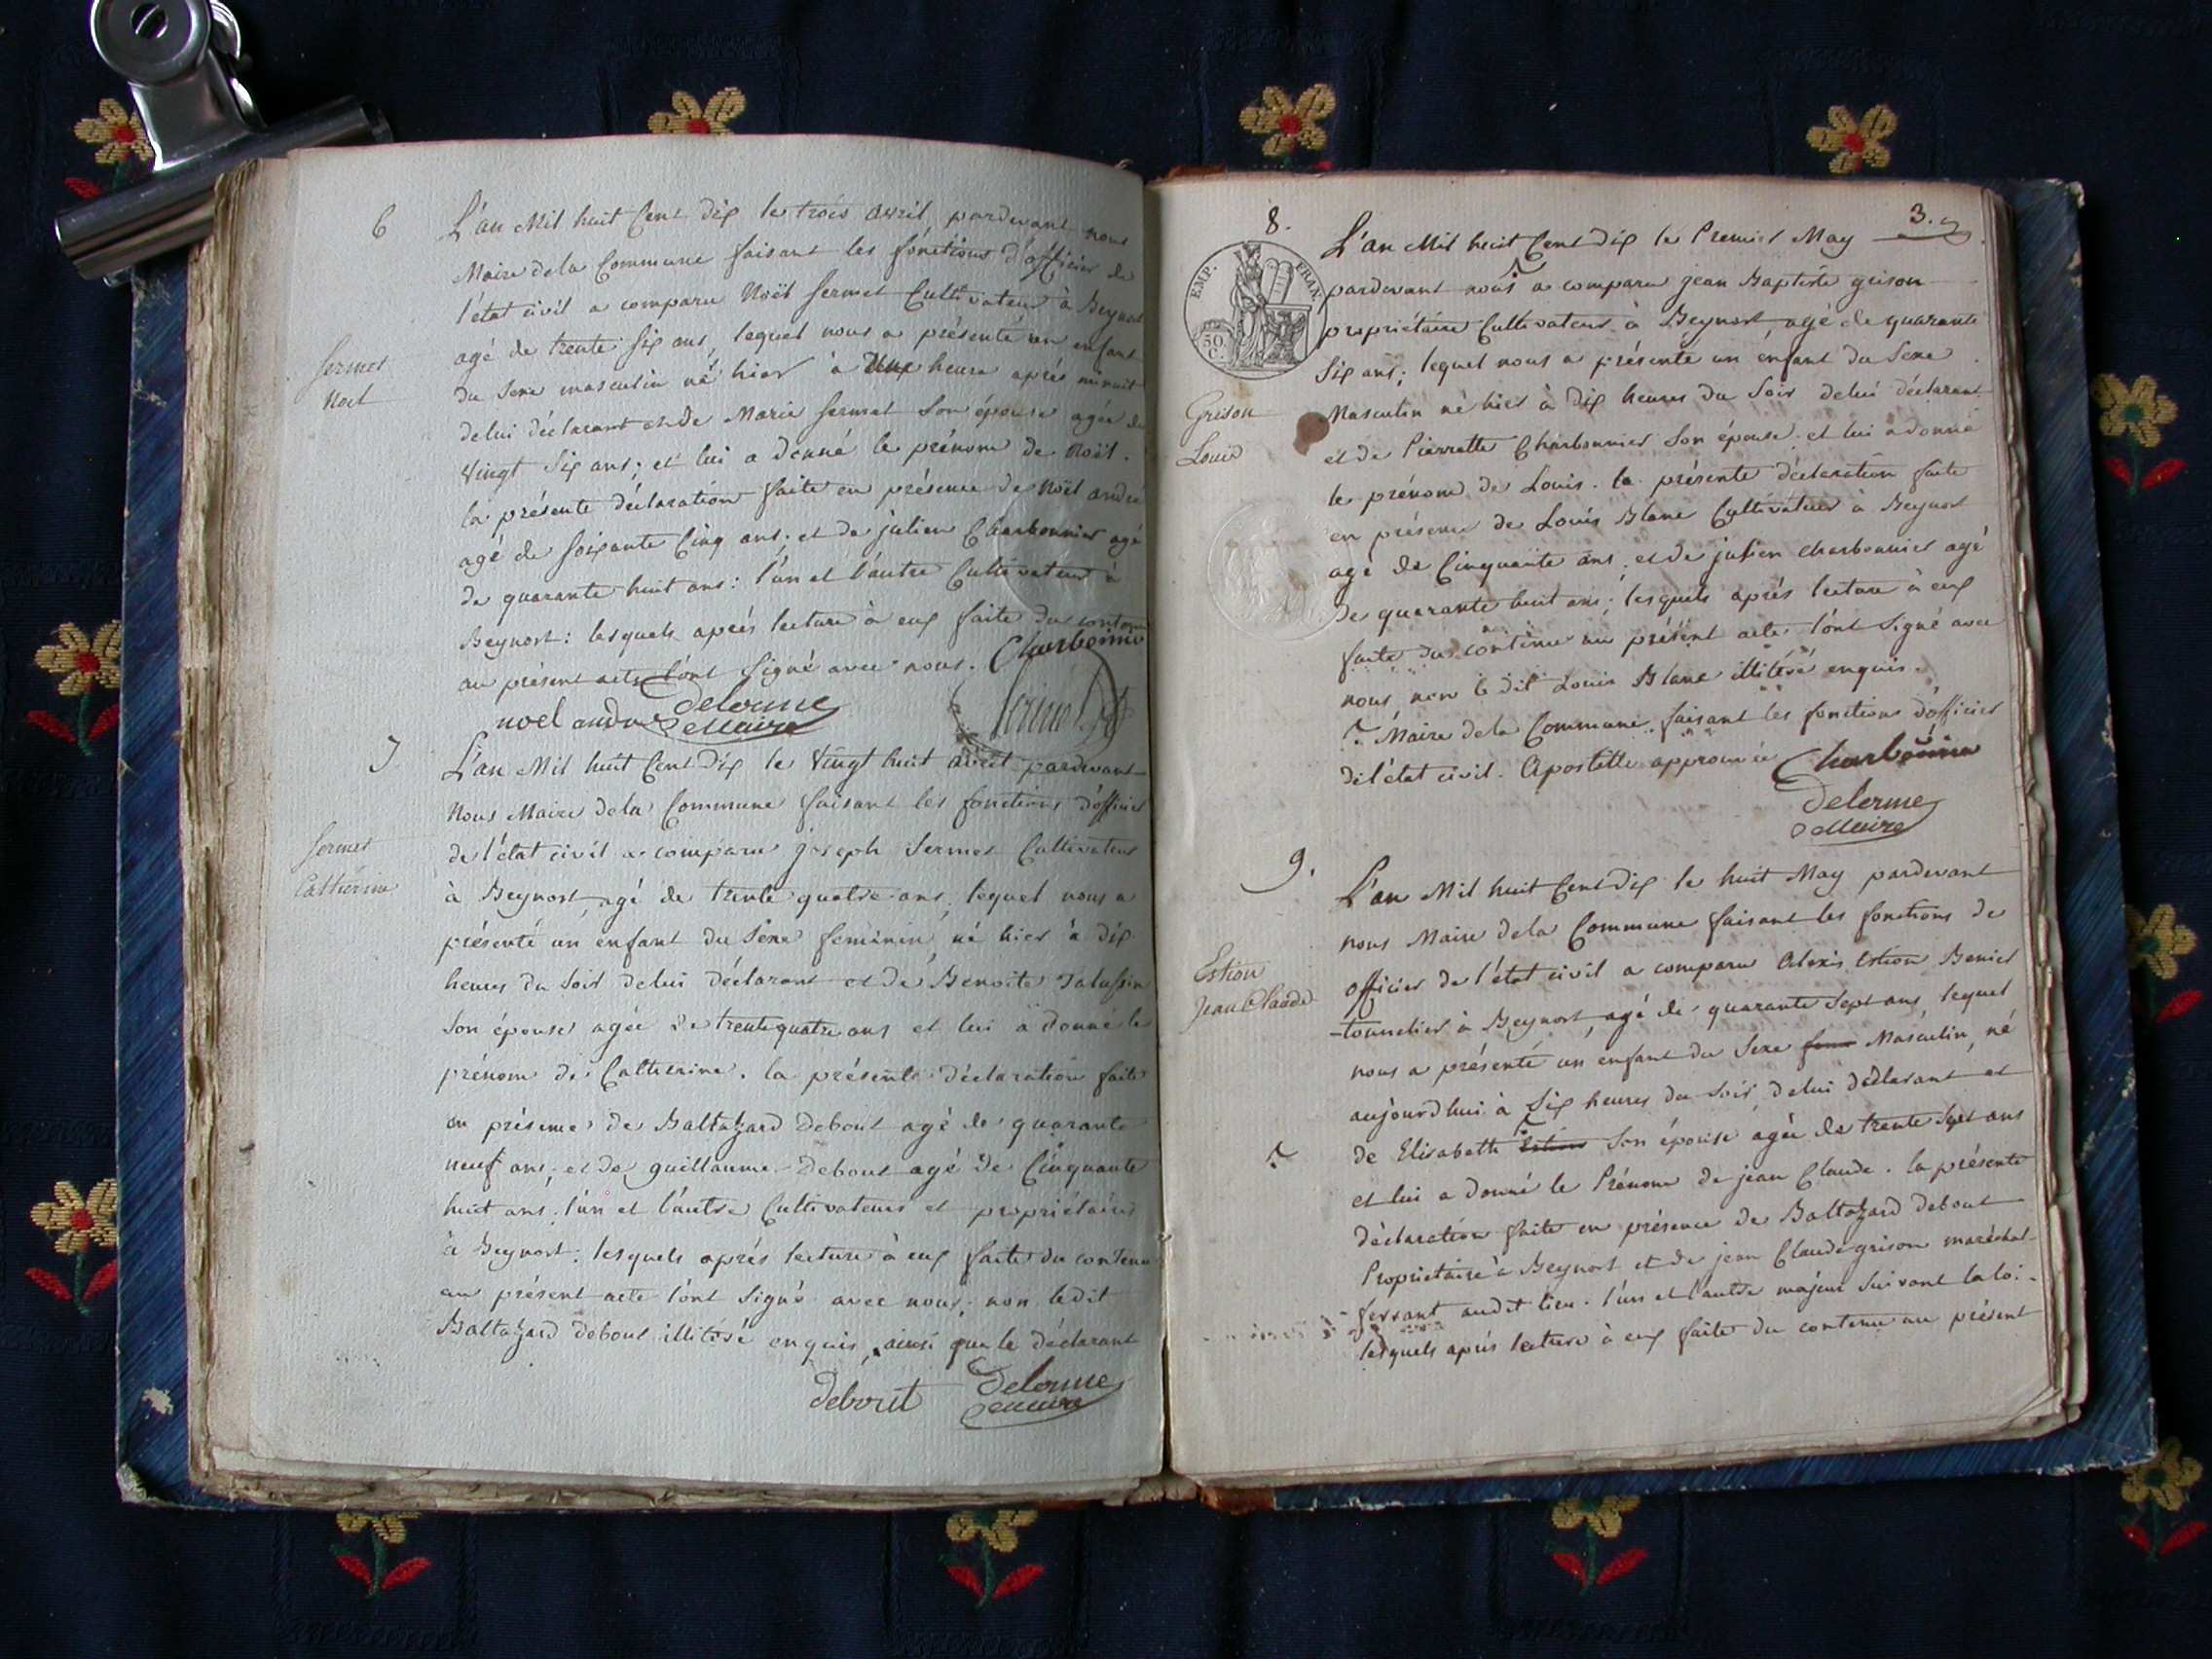 6
L'an Mil huit Cent dix le trois avril pardevant nous
Maire dela Commune faisant les fonctions d'officier de
l'état civil a comparu Noël Sermet Cultivateur à Beynost
agé de trente six ans, lequel nous a présenté un enfant
Sermet
du Sexe masculin né hier à heure après minuit
Noel
delui déclarant et de Marie Sermet Son épouse agée de
Vingt Six ans; et lui a donné le prénom de Noël.
la présente déclaration faite en présence de Noël andré
agé de soixante Cinq ans; et de julien Charbonnier agé
de quarante huit ans: l'un et l'autre Cultivateur à
Beynost: lesquels après lecture à eux faite du contenu
au présent acte l'ont Signé avec nous. Charbonnier
noel andre Delorme
Maire
7
L'an Mil huit Cent Dix le Vingt huit avril pardevant
Nous Maire dela Commune faisant les fonctions d'officier
Sermet
de l'état civil a comparu joseph Sermet Cultivateur
Catherine
à Beynost agé de trente quatre ans, lequel nous a
présenté un enfant du Sexe feminin, né hier à dix
heures du Soir delui déclarant et de Benoite
Son épouse agée de trente quatre ans et lui a donné le
prénom de Catherine. la présente déclaration faite
en présence de Baltazard Debout agé de quarante
neuf ans, et de guillaume Debout agé de Cinquante
huit ans, l'un et l'autre Cultivateurs et propriétaires
à Beynost: lesquels après lecture à eux faite du contenu
au présent acte l'ont Signé avec nous; non ledit
Baltazard debout illitéré enquis, ainsi que le déclarant
debout Delorme
Maire
3.
8.
L'an Mil huit Cent Dix le Premier May
EMP. FRAN.
50 C.
pardevant nous a comparu jean Baptiste grison
propriétaire Cultivateur à Beynost, agé de quarante
Six ans; lequel nous a présenté un enfant du Sexe
Grison
Masculin né hier à dix heures du Soir delui déclarant
Louis
et de Pierrette Charbonnier Son épouse et lui a donné
le prénom de Louis. la présente déclaration faite
en présence de Louis Blanc Cultivateur à Beynost
agé de Cinquante ans, et de julien charbonnier agé
de quarante huit ans; lesquels après lecture à eux
faite du contenu au présent acte l'ont Signé avec
nous, non le dit Louis Blanc illitéré enquis.
Maire dela Commune faisant les fonctions d'officier
de l'état civil. Apostille approuvée Charbonnier
Delorme
Maire
9.
L'an Mil huit Cent Dix le huit May pardevant
nous Maire dela Commune faisant les fonctions de
Estion
officier de l'état civil a comparu Alexis Estion Benier
Jean Claude
-tonnelier à Beynost, agé de quarante Sept ans, lequel
nous a présenté un enfant du Sexe fem Masculin, né
aujourdhui à Six heures du Soir, delui déclarant et
de Elisabeth Estion Son épouse agée de trente Sept ans
et lui a donné le Prénom de jean Claude. la présente
déclaration faite en présence de Baltazard debout
Propriétaire à Beynost et de jean Claude grison maréchal-
ferrant audit lieu. l'un et l'autre majeur Suivant la loi.
lesquels après lecture à eux faite du contenu au présent